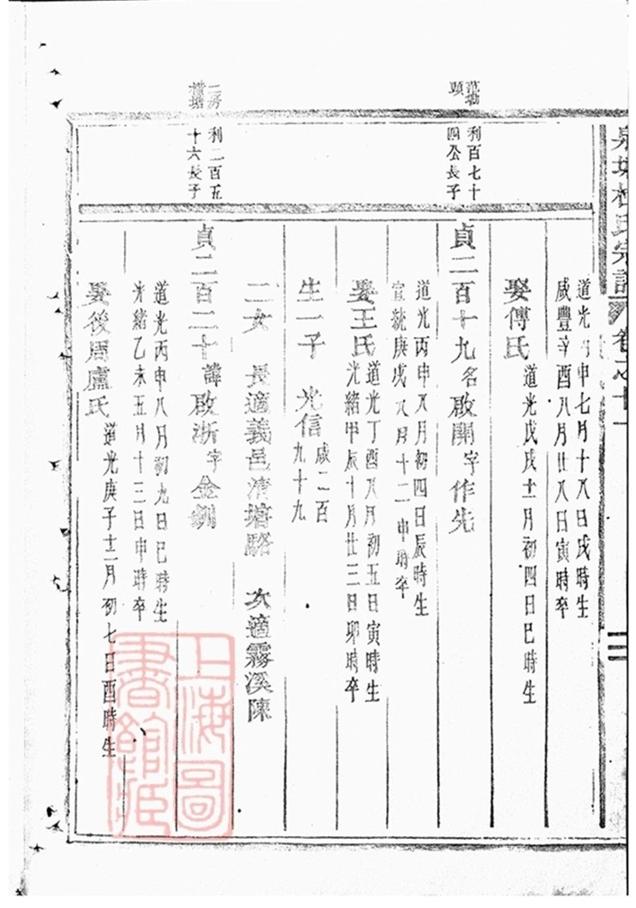 氏宗譜 卷之十一
道光丙申七月十八日戌時生
咸豐辛酉八月廿八日寅時卒
娶傅氏 道光戊戌十一月初四日巳時生
塘頭
利百七十四公長子
貞二百十九 名啟開 字作先
道光丙申八月初四日辰時生
宣統庚戌八月十二申時卒
娶王氏 道光丁酉八月初五日寅時生
光緒甲辰十月廿三日卯時卒
生一子 光信 咸二百九十九
二女 長適義邑清塘駱 次適霧溪陳
二房 塘
利二百五十六長子
貞二百二十 諱啟浙 字金
道光丙申八月初九日巳時生
光緒乙未五月十三日申時卒
娶後周盧氏 道光庚子十二月初七日酉時生
上海圖書館藏